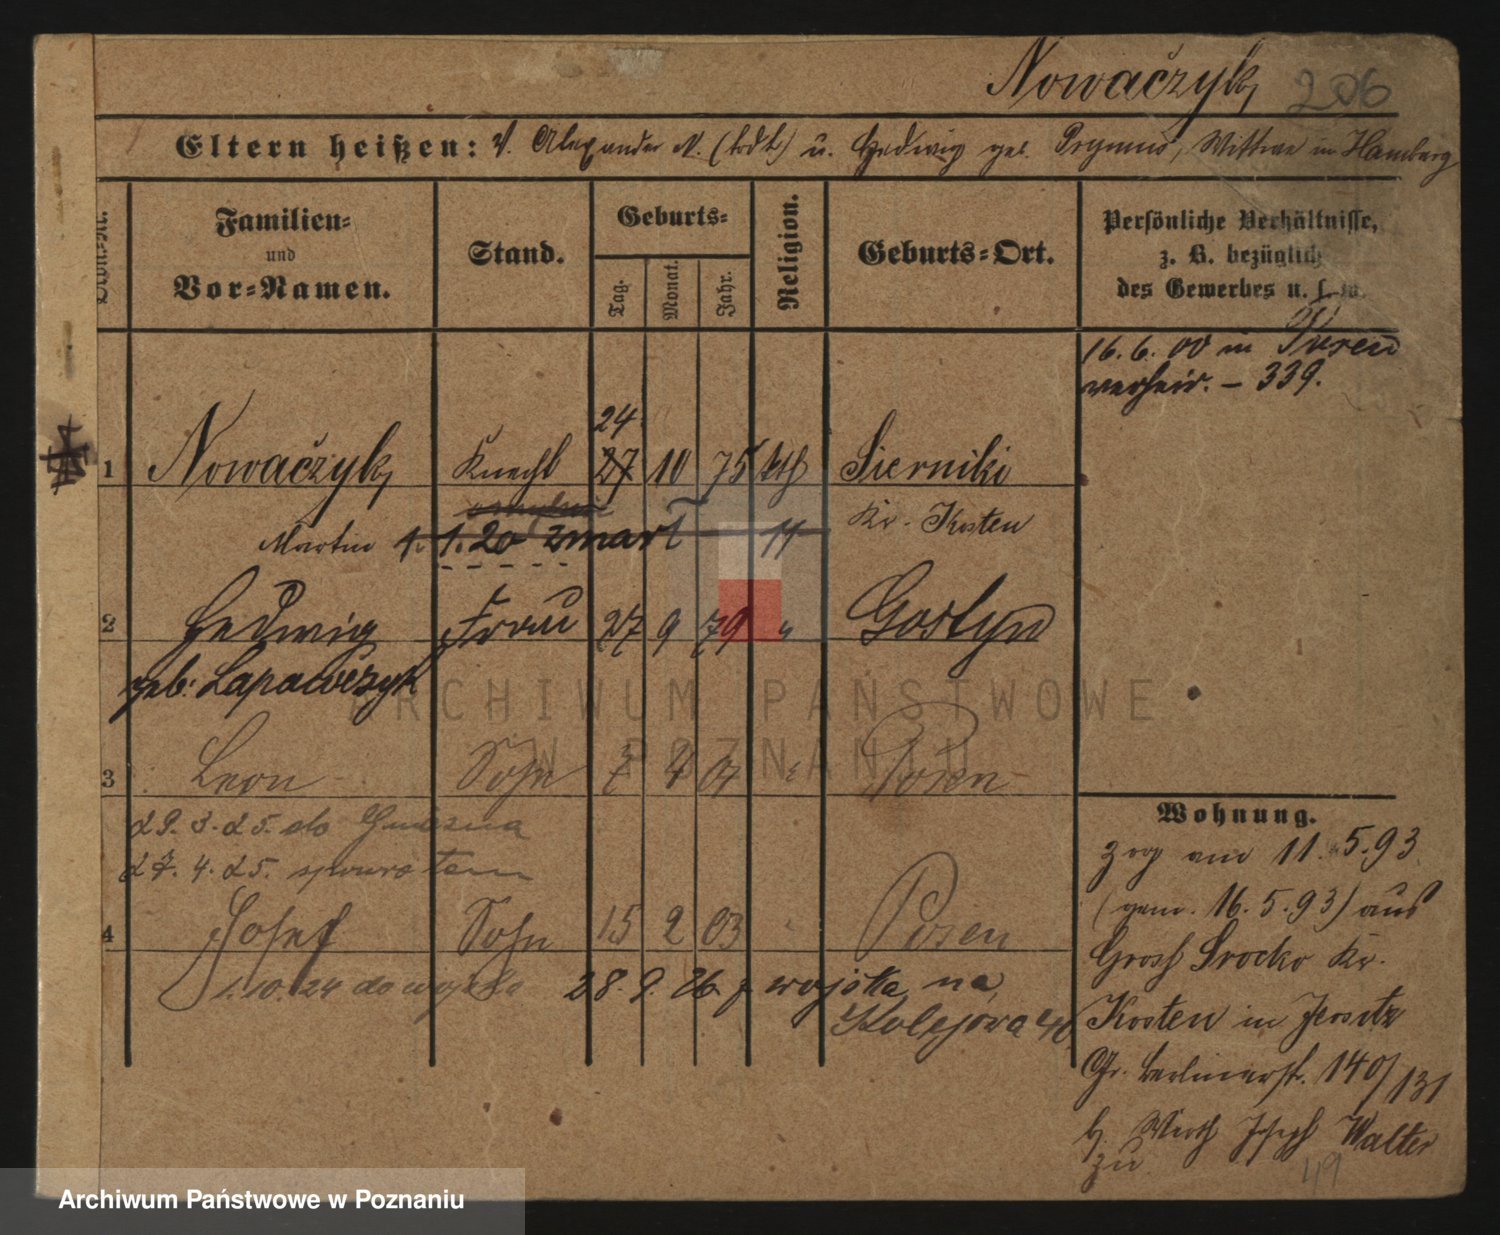 Nowaczyk 206
Eltern heißen: V. Alexander N. (todt) u. Hedwig geb. Prymus, Wittwe in Hamburg
Familien- und Vor-Namen.
Stand.
Geburts-
Tag. Monat. Jahr.
Religion.
Geburts-Ort.
Persönliche Verhältnisse,
z. B. bezüglich
des Gewerbes u. s. w.
16. 6. 00 in Posen
verheir. – 339.
24
1 Nowaczyk Knecht 27 10 75 kth Sierniki
Kr. Kosten
Martin 1. 20 zmarł
2 Hedwig Frau 27 9 79 " Gostyn
geb: Lapawczyk
3 Leon Sohn 4 04 Posen
29. 3. 25. do Gniezna
27. 4. 25. spowrotem
4 Josef Sohn 15 2 03 Posen
1. 10. 24 do wojska 28. 9. 26 z wojska na
Kolejowa 40
Wohnung.
zog am 11. 5. 93
(gem. 16. 5. 93) aus
Gross Srocko Kr.
Kosten in Jersitz
Gr. Berlinerstr. 140/131
b. Wirth Joseph Walter
zu
49
ARCHIWUM PAŃSTWOWE
W POZNANIU
Archiwum Państwowe w Poznaniu